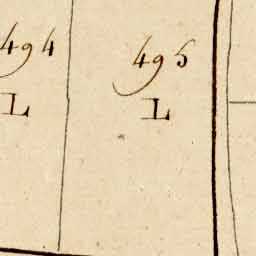 494 495
L L